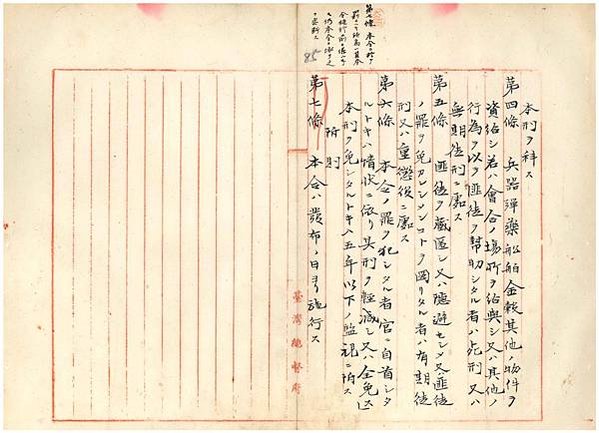 本刑ヲ科ス
第四條 兵器彈藥船舶金穀其他ノ物件ヲ
資給シ若ハ會合ノ場所ヲ給與シ又ハ其他ノ
行為ヲ以テ匪徒ヲ幇助シタル者ハ死刑又ハ
無期徒刑ニ處ス
第五條 匪徒ヲ藏匿シ又ハ隱避セシメ又ハ匪徒
ノ罪ヲ免カレシメンコトヲ圖リタル者ハ有期徒
刑又ハ重懲役ニ處ス
第六條 本令ノ罪ヲ犯シタル者官ニ自首シタ
ルトキハ情狀ニ依リ其刑ヲ輕減シ又ハ全免ス
本刑ヲ免シタルトキハ五年以下ノ監視ニ付ス
附則
第七條 本令ハ發布ノ日ヨリ施行ス
第七條 本令ニ
85
臺灣總督府